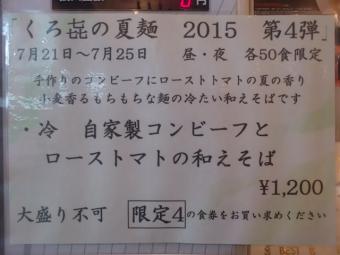 「くろ㐂の夏麺 2015 第4弾」
7月21日〜7月25日 昼・夜 各50食限定
手作りのコンビーフにローストトマトの夏の香り
小麦香るもちもちな麺の冷たい和えそばです
・冷 自家製コンビーフと
ローストトマトの和えそば
¥1,200
大盛り不可 限定4の食券をお買い求めください